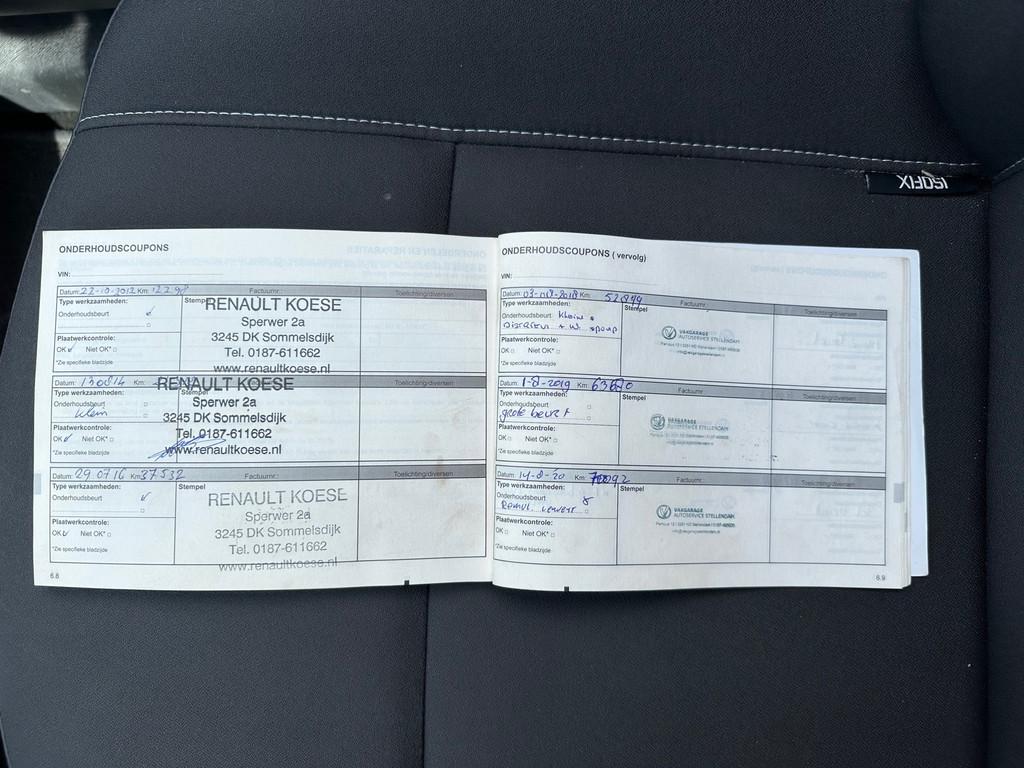 ISOFIX
ONDERHOUDSCOUPONS
VIN:
Datum: 22-10-2012 Km: Factuurnr.: Toelichting/diversen
Type werkzaamheden: Stempel
RENAULT KOESE
Onderhoudsbeurt
Sperwer 2a
3245 DK Sommelsdijk
Plaatwerkcontrole:
OK Niet OK*
Tel. 0187-611662
*Zie specifieke bladzijde
www.renaultkoese.nl
Datum: 130814 Km: Toelichting/diversen
RENAULT KOESE
Type werkzaamheden: Stempel
Sperwer 2a
Onderhoudsbeurt
klein
3245 DK Sommelsdijk
Plaatwerkcontrole:
Tel. 0187-611662
OK Niet OK*
www.renaultkoese.nl
*Zie specifieke bladzijde
Datum: 29 07 16 Km: 37532 Factuurnr.: Toelichting/diversen
Type werkzaamheden: Stempel
RENAULT KOESE
Onderhoudsbeurt
Sperwer 2a
Plaatwerkcontrole:
3245 DK Sommelsdijk
OK Niet OK*
Tel. 0187-611662
*Zie specifieke bladzijde
www.renaultkoese.nl
6.8
ONDERHOUDSCOUPONS ( vervolg)
VIN:
Datum: Km: 52899 Factuurnr.: Toelichting/diversen
Type werkzaamheden: Stempel
Onderhoudsbeurt klein
Plaatwerkcontrole:
VAKGARAGE
AUTOSERVICE STELLENDAM
OK Niet OK*
*Zie specifieke bladzijde
Datum: 1-8-2019 Km: Factuurnr.: Toelichting/diversen
Type werkzaamheden: Stempel
Onderhoudsbeurt
grote beurt
VAKGARAGE
AUTOSERVICE STELLENDAM
Plaatwerkcontrole:
OK Niet OK*
*Zie specifieke bladzijde
Datum: 14-8-20 Km: Factuurnr.: Toelichting/diversen
Type werkzaamheden: Stempel
Onderhoudsbeurt
VAKGARAGE
AUTOSERVICE STELLENDAM
Plaatwerkcontrole:
OK Niet OK*
*Zie specifieke bladzijde
6.9